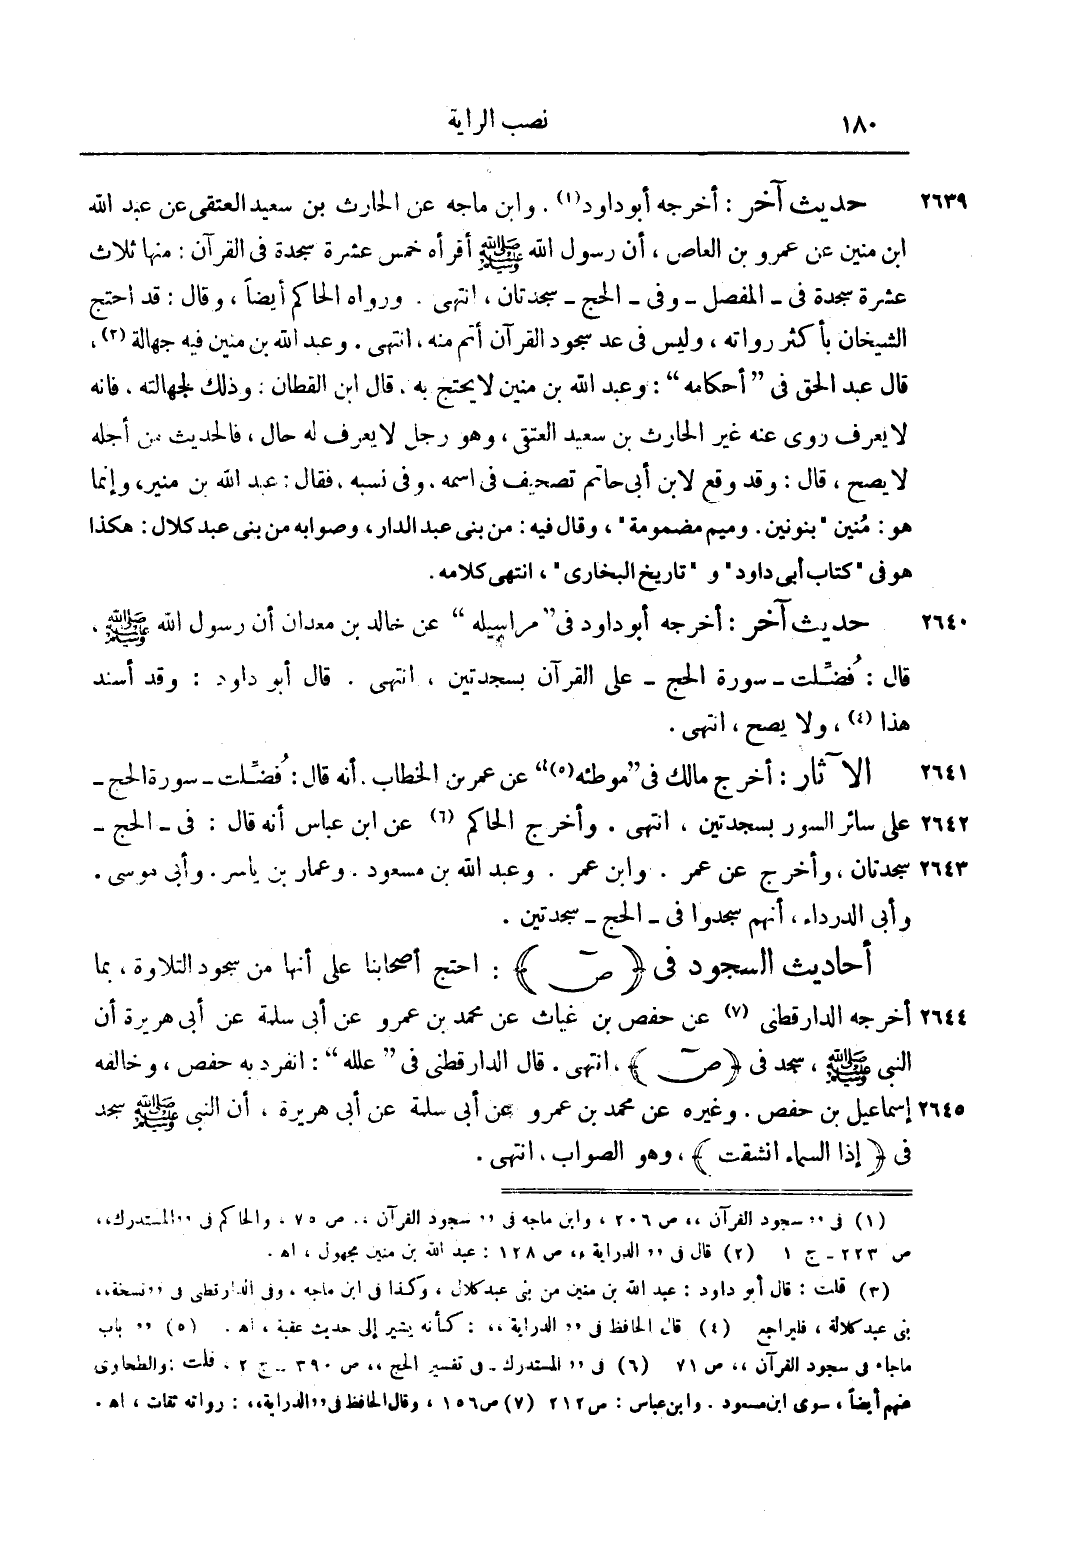 ١٨٠ نصب الراية
٢٦٣٩ حديث آخر : أخرجه أبو داود (١) . وابن ماجه عن الحارث بن سعيد العتقى عن عبد الله
ابن منين عن عمرو بن العاص ، أن رسول الله ﷺ أقرأه خمس عشرة سجدة فى القرآن : منها ثلاث
عشرة سجدة فى ـ المفصل ـ وفى ـ الحج ـ سجدتان ، انتهى . ورواه الحاكم أيضاً ، وقال : قد احتج
الشيخان بأكثر رواته ، وليس فى عد سجود القرآن أتم منه ، انتهى . وعبد الله بن منين فيه جهالة (٢) ،
قال عبد الحق فى ”أحكامه“ : وعبد الله بن منين لا يحتج به . قال ابن القطان : وذلك لجهالته . فانه
لا يعرف روى عنه غير الحارث بن سعيد العتقى ، وهو رجل لا يعرف له حال ، فالحديث من أجله
لا يصح ، قال : وقد وقع لابن أبى حاتم تصحيف فى اسمه . وفى نسبه . فقال : عبد الله بن منير ، وإنما
هو : مُنين "بنونين . وميم مضمومة" ، وقال فيه : من بنى عبد الدار ، وصوابه من بنى عبد كلال : هكذا
هو فى "كتاب أبى داود" و "تاريخ البخارى" ، انتهى كلامه .
٢٦٤٠ حديث آخر : أخرجه أبو داود فى ”مراسيله“ عن خالد بن معدان أن رسول الله ﷺ ،
قال : فُضِّلت ـ سورة الحج ـ على القرآن بسجدتين ، انتهى . قال أبو داود : وقد أسند
هذا (٤) ، ولا يصح ، انتهى .
٢٦٤١ الآثار : أخرج مالك فى ”موطئه (٥)“ عن عمر بن الخطاب . أنه قال : فُضِّلت ـ سورة الحج ـ
٢٦٤٢ على سائر السور بسجدتين ، انتهى . وأخرج الحاكم (٦) عن ابن عباس أنه قال : فى ـ الحج ـ
٢٦٤٣ سجدتان ، وأخرج عن عمر . وابن عمر . وعبد الله بن مسعود . وعمار بن ياسر . وأبى موسى .
وأبى الدرداء ، أنهم سجدوا فى ـ الحج ـ سجدتين .
أحاديث السجود فى ﴿ صٓ ﴾ : احتج أصحابنا على أنها من سجود التلاوة ، بما
٢٦٤٤ أخرجه الدارقطنى (٧) عن حفص بن غياث عن محمد بن عمرو عن أبى سلمة عن أبى هريرة أن
النبى ﷺ ، سجد فى ﴿ صٓ ﴾ ، انتهى . قال الدارقطنى فى ”علله“ : انفرد به حفص ، وخالفه
٢٦٤٥ إسماعيل بن حفص . وغيره عن محمد بن عمرو عن أبى سلمة عن أبى هريرة ، أن النبى ﷺ سجد
فى ﴿ إذا السماء انشقت ﴾ ، وهو الصواب ، انتهى .
(١) فى ,, سجود القرآن ،، ص ٢٠٦ ، وابن ماجه فى ,, سجود القرآن ،، ص ٧٥ ، والحاكم فى ,,المستدرك،،
ص ٢٢٣ ـ ج ١ (٢) قال فى ,, الدراية ،، ص ١٢٨ : عبد الله بن منين مجهول ، اه .
(٣) قلت : قال أبو داود : عبد الله بن منين من بنى عبد كلال ، وكذا فى ابن ماجه ، وفى الدارقطى فى ,,نسخة،،
بنى عبد كلالة ، فليراجع (٤) قال الحافظ فى ,, الدراية ،، : كأنه يشير إلى حديث عقبة ، اه . (٥) ,, باب
ماجاء فى سجود القرآن ،، ص ٧١ (٦) فى ,, المستدرك ـ فى تفسير الحج ،، ص ٣٩٠ ـ ج ٢ . قلت : والطحاوى
عنهم أيضاً ، سوى ابن مسعود . وابن عباس : ص ٢١٢ (٧) ص ١٥٦ ، وقال الحافظ فى ,,الدراية،، : رواته ثقات ، اه .